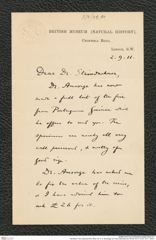 BRITISH MUSEUM (NATURAL HISTORY),
CROMWELL ROAD,
LONDON, S.W.
2.9.11.
Dear Dr. Steindachner,
Dr. Ansorge has now
made a full lot of the fish
from Portuguese Guinea that
he offers to sell you. The
specimens are nearly all very
well preserved, & mostly of a
good size.
Dr. Ansorge has asked me
to fix the value of the series,
& I have advised him to
ask £26 for it.